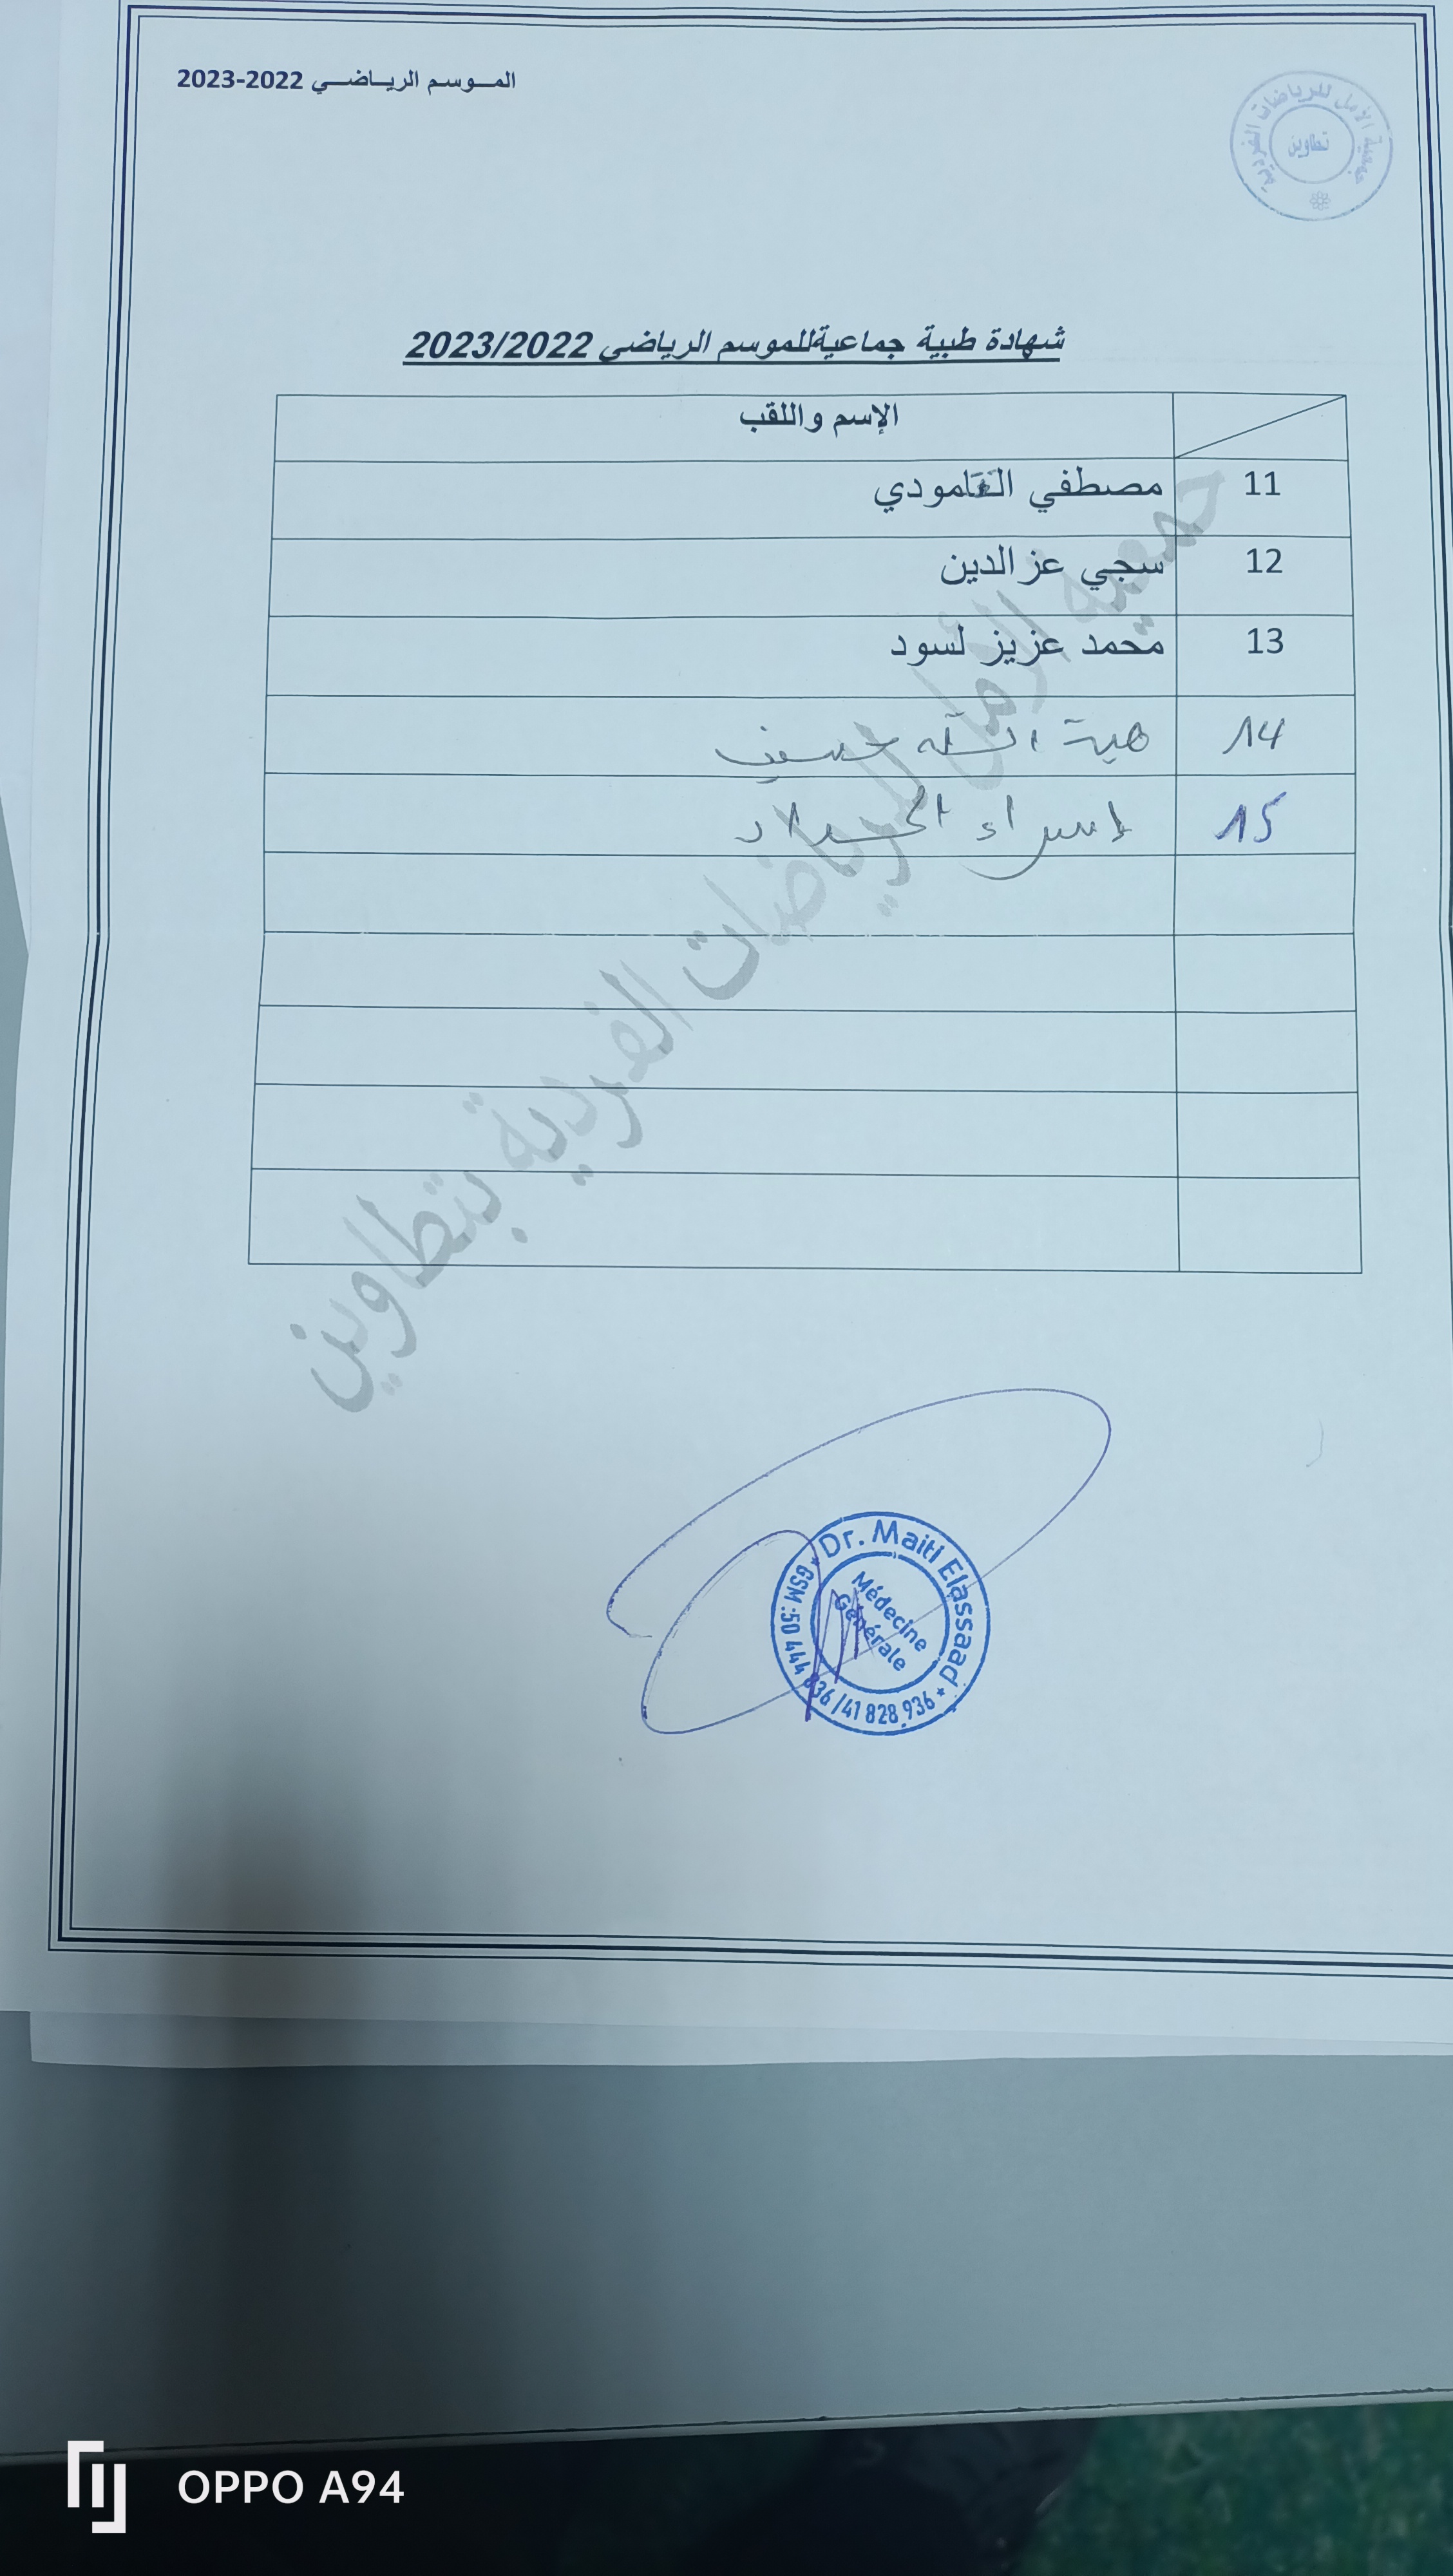 الموسم الرياضي 2022-2023
جمعية الأمل للرياضات الفردية
تطاوين
شهادة طبية جماعيةللموسم الرياضي 2023/2022
الإسم واللقب
11 مصطفي
12 سجي عزالدين
13 محمد عزيز لسود
14 هبة الله
15 إسراء الحداد
جمعية الأمل للرياضات الفردية بتطاوين
Dr. Maiti Elassaad
Médecine
Générale
GSM :50 444 836 /41 828 936
OPPO A94